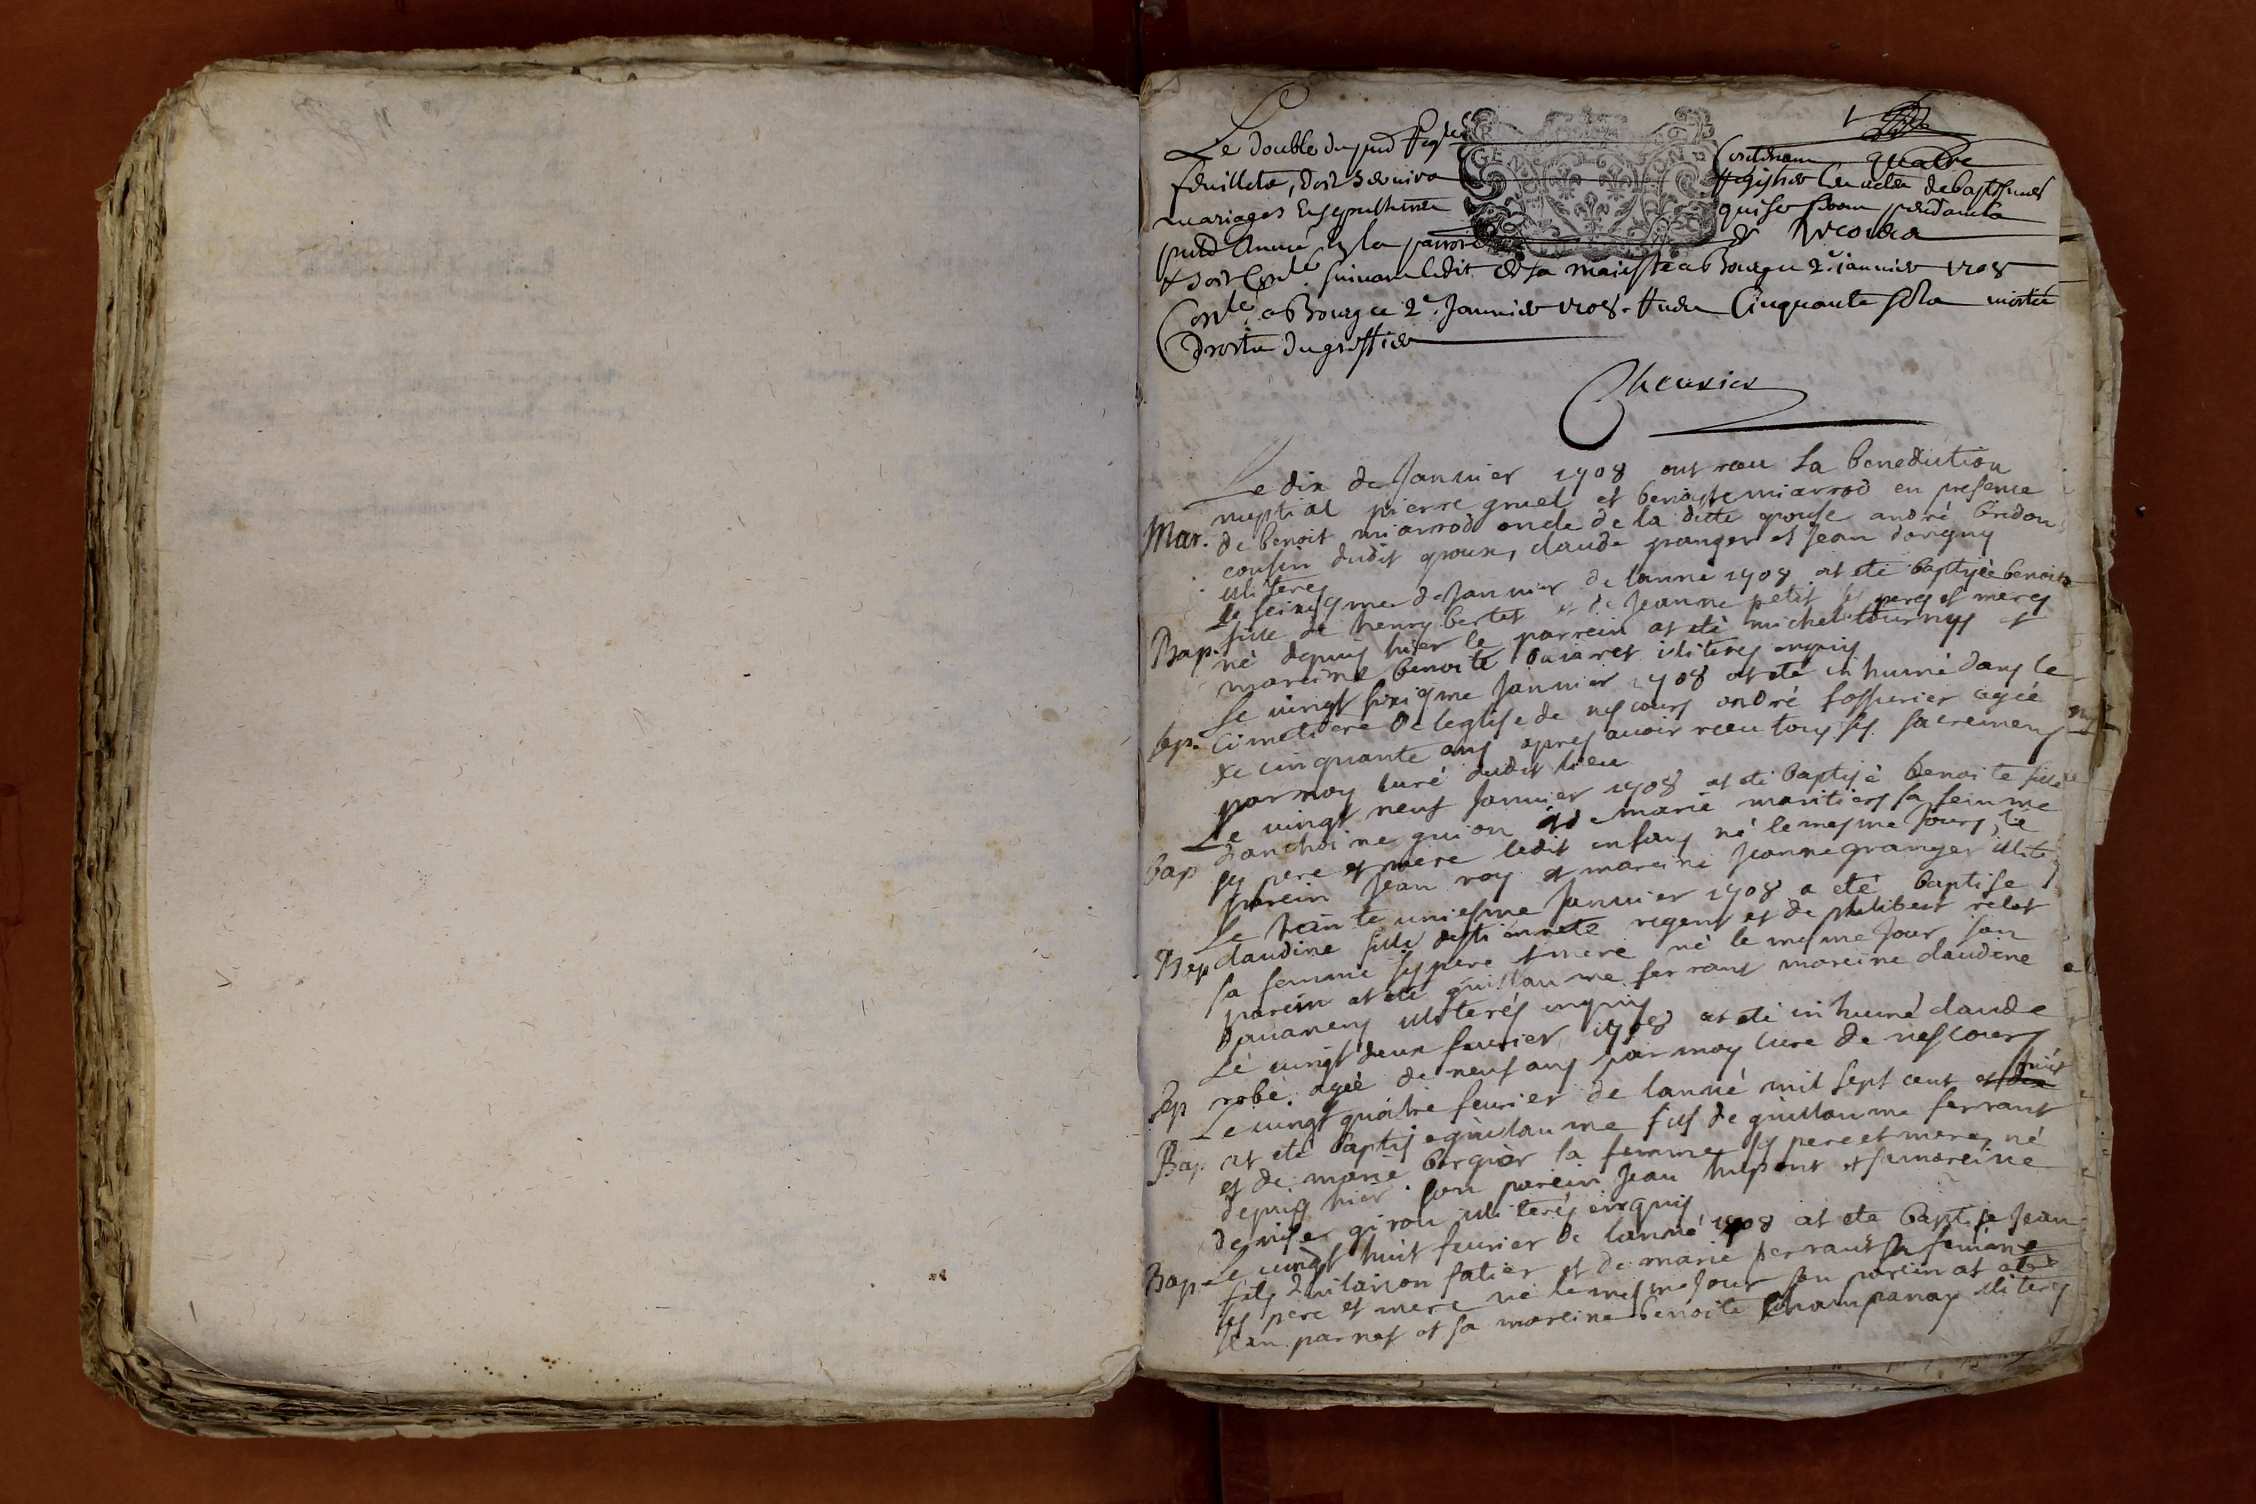 Le double du pnt Regre Contenam quatre
feuilletz, doit servir a Registrer les actes de baptesmes
mariages Ensepulturer qui se feron pendant la
pnte Année En la parroisse de Nescour
& soit Conle suivant ledit de sa majesté a Bourg ce 2e janvier 1708
Conle a Bourg ce 2e Janvier 1708. Cinquante sols moitié
Droitz du greffier
Cheurier
Le dix de Janvier 1708 ont receu la benediction
Mar. nuptial pierre gruel et benoiste miarrod en presence
de benoit miarrod oncle de la ditte epouse andré bridon
cousin dudit epoux, claude granger et Jean dorigny
illiteres
le seiziesme de Janvier de lanné 1708 at eté baptisèe benoite
Bap. fille de henry bertet et de Jeanne petit ses peres et meres
né depuis hier le parrein at eté michel tournus et
mareine benoite iliteres enquis
Le vingt sixiesme Janvier 1708 at eté inhumé dans le
Sep. Cimetiere de leglise de nescours andré fossurier agéé
de cinquante ans apres avoir receu tous ses sacremens
par moy curé dudit lieu
Le vingt neuf Janvier 1708 at eté baptisè benoite fille
Bap danthoine guion et de marie manitiers sa femme
ses pere et mere ledit enfans né le mesme Jours, le
parein Jean roy et mareine Jeanne granger illite
Le trante uniesme Janvier 1708 a eté baptise
Bap claudine fille regent et de philibert relet
sa femme ses pere et mere né le mesme Jour son
parein at eté guillaume ferrant mareine claudine
illiterés enquis
Le vingt deux fevrier 1708 at eté inhumé claude
Sep robé. agéé de neuf ans par moy cure de nescours
Le vingt quatre fevrier de lanné mil sept cent et huit
Bap. at eté baptise guillaume fils de guillaume ferrant
et de marie bergier sa femme ses pere et mere, né
depuis hier. son parein Jean et sa mareine
denise giron illiterés enquis
Bap. Le vingt huit fevrier de lanné 1708 at eté baptise Jean
fils dhilairon fatier et de marie perraut sa femme
ses pere et mere né le mesme Jour son parein at eté
Jean parnet et sa mareine benoite champanay illiteres